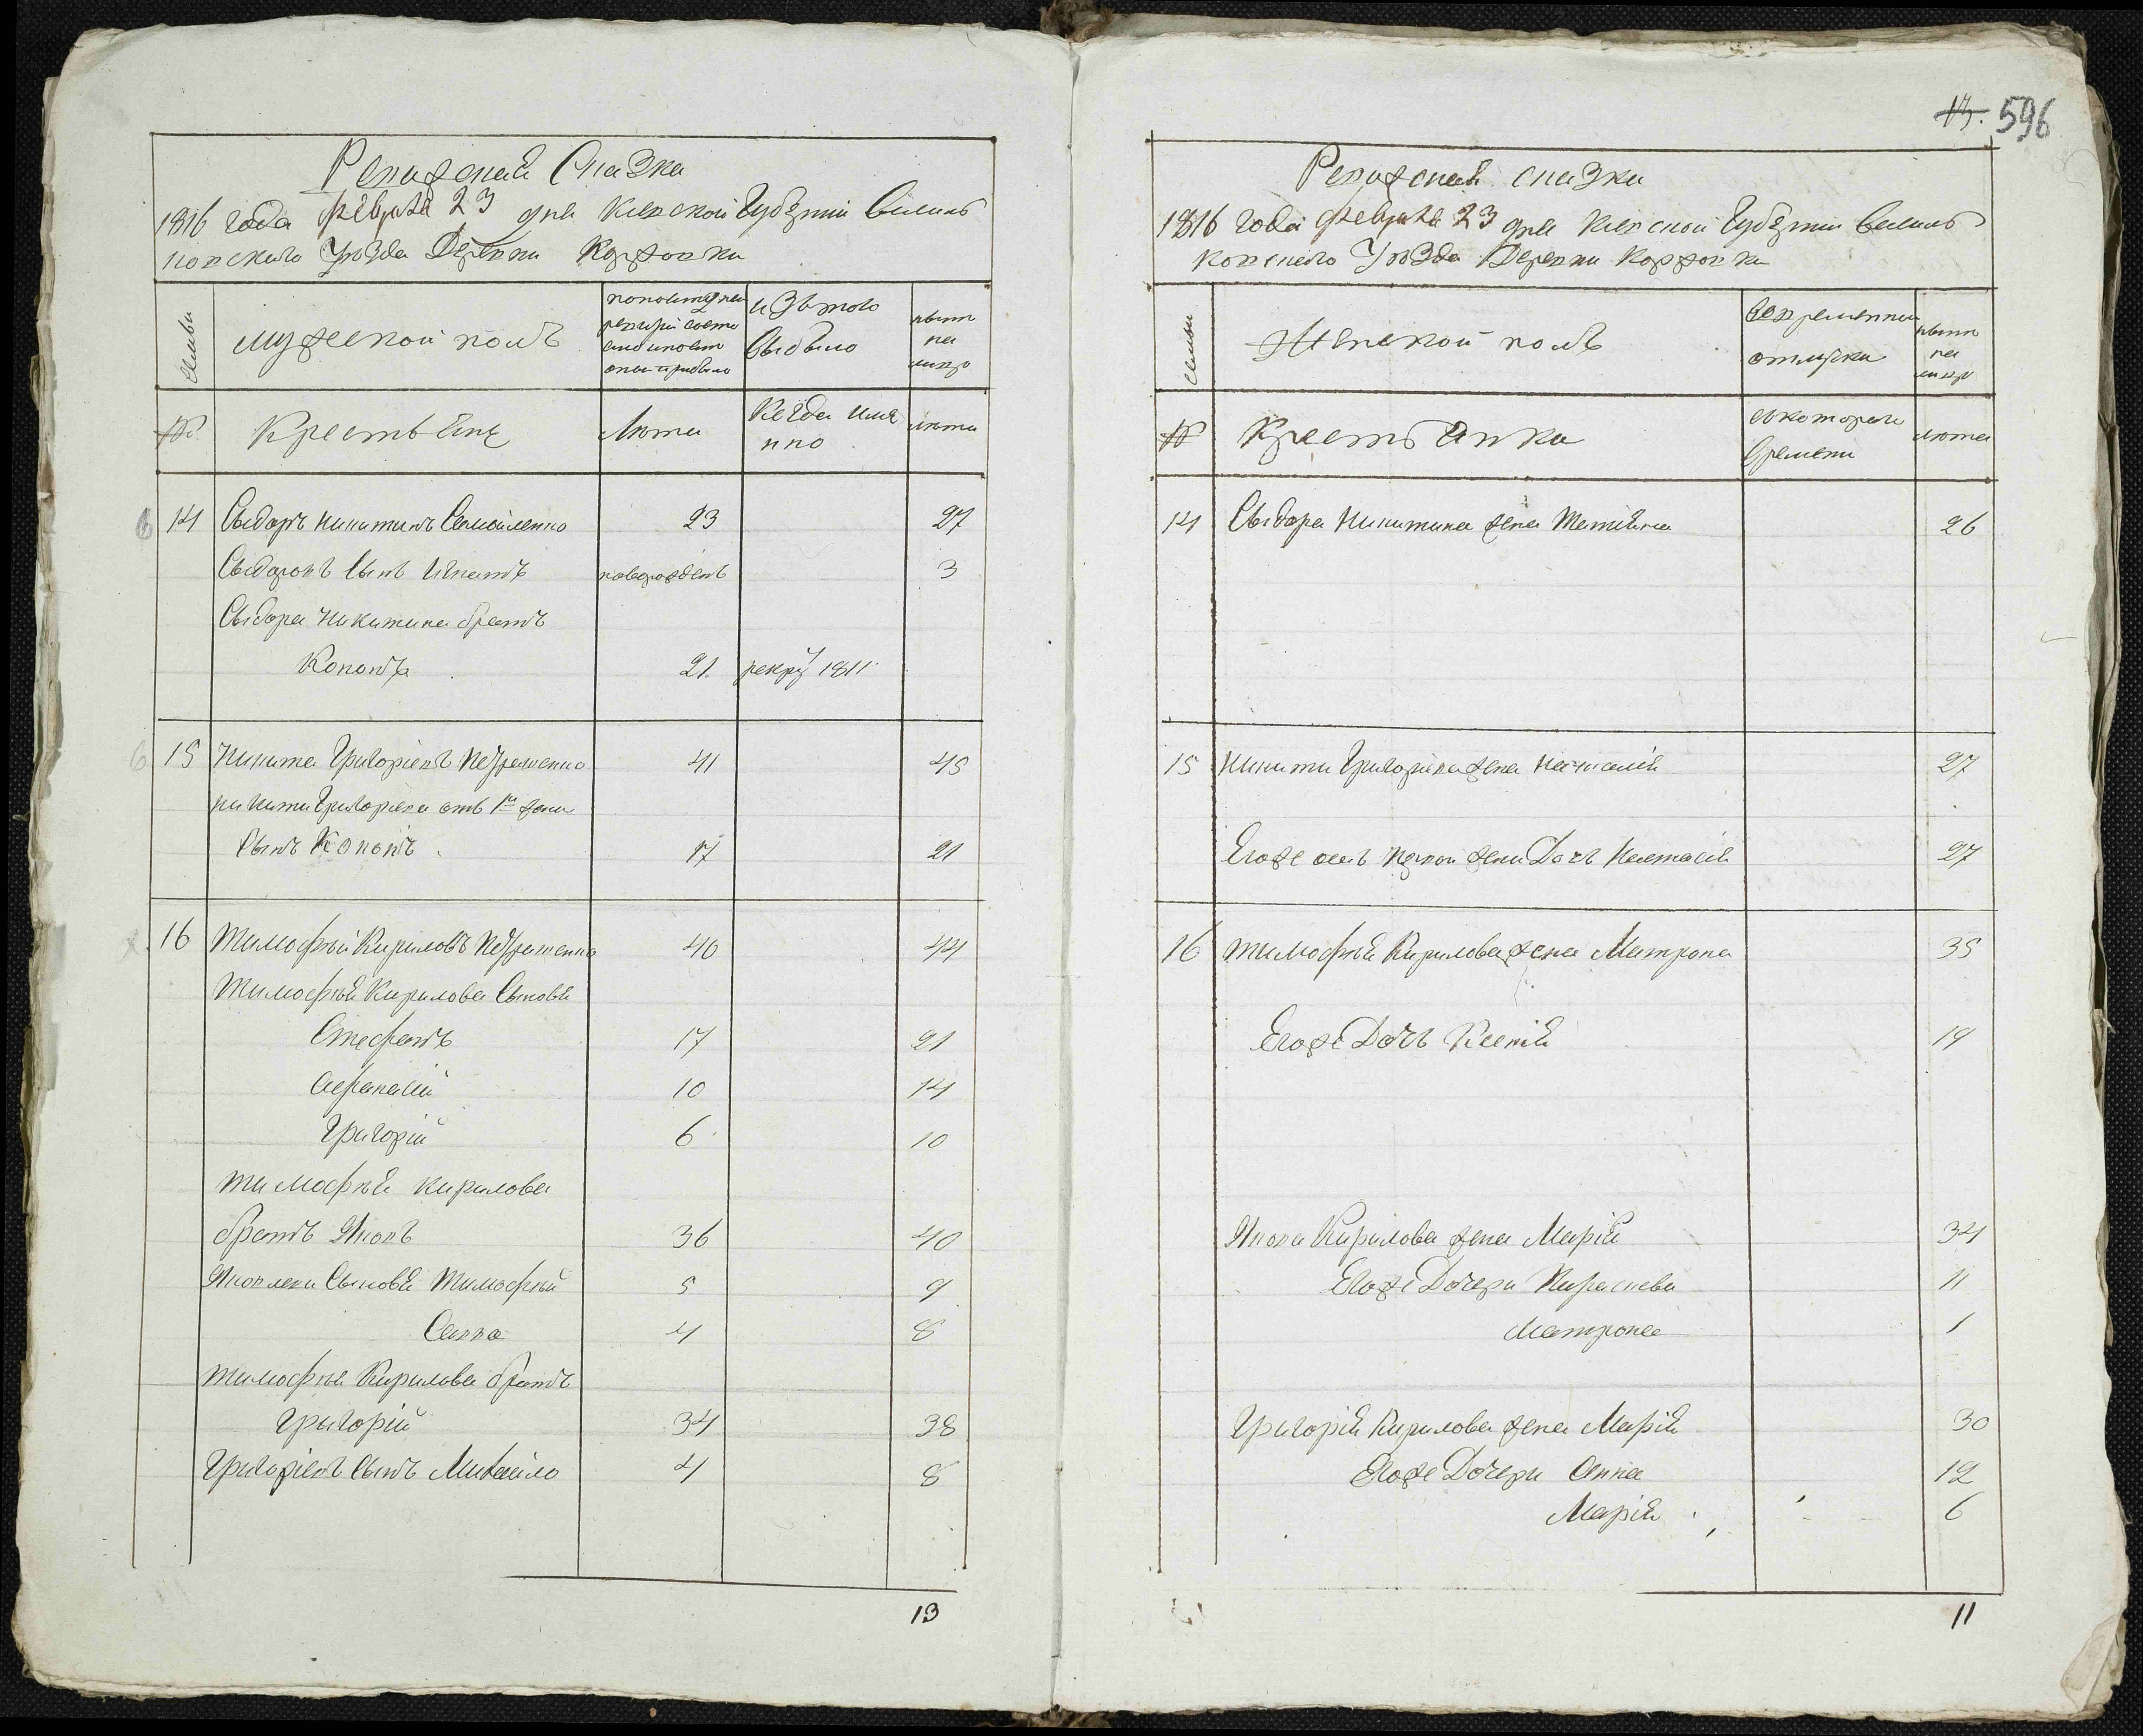 Ревизская Сказка
1816 года февраля 23 дня Киевской Губернии Васильковского Уезда Деревни
семьи
мужеской полъ
изъ того выбыло
ныне на лицо
№
Крестьяне
Лета
Когда именно
лета
14 Сыдоръ Никитинъ Самойленко 23 27
Сыдоровъ Сынъ Игнатъ новорожденъ 3
Сыдора Никитина братъ
Кононъ 21. рекру 1811
15 Никита Григориевъ 41 45
Никити Григориева отъ 1й жени
Сынъ Кононъ 17 21
16 Тимофѣй Кириловъ 40 44
Тимофѣя Кирилова Сыновя
Стефанъ 17 21
Афанасiй 10 14
Григорiй 6 10
Тимофѣя Кирилова
братъ Яковъ 36 40
Яковлеви Сыновя Тимофѣй 5 9
Савва 4 8
Тимофѣя Кирилова братъ
Григорiй 34 38
Григорiевъ Сынъ Михайло 4 8
13
13. 596
Ревизская сказка
1816 года февраля 23 дня Киевской Губернии Васильковского Уезда Деревни
семьи
Женской полъ
Во временной отлучки
ныне на лицо
№
Крестьянка
с котораго времени
лета
14 Сыдора Никитина жена Татiяна 26
15 Никити Григориева жена 27
Егоже отъ первой жени Дочь Настасiя 27
16 Тимофѣя Кирилова жена Матрона 35
Егоже Дочь Ксенiя 19
Якова Кирилова жена Марiя 34
Егоже Дочери Параскева 11
Матрона 1
Григорiя Кирилова жена Марiя 30
Егоже Дочери Анна 12
Марiя 6
11